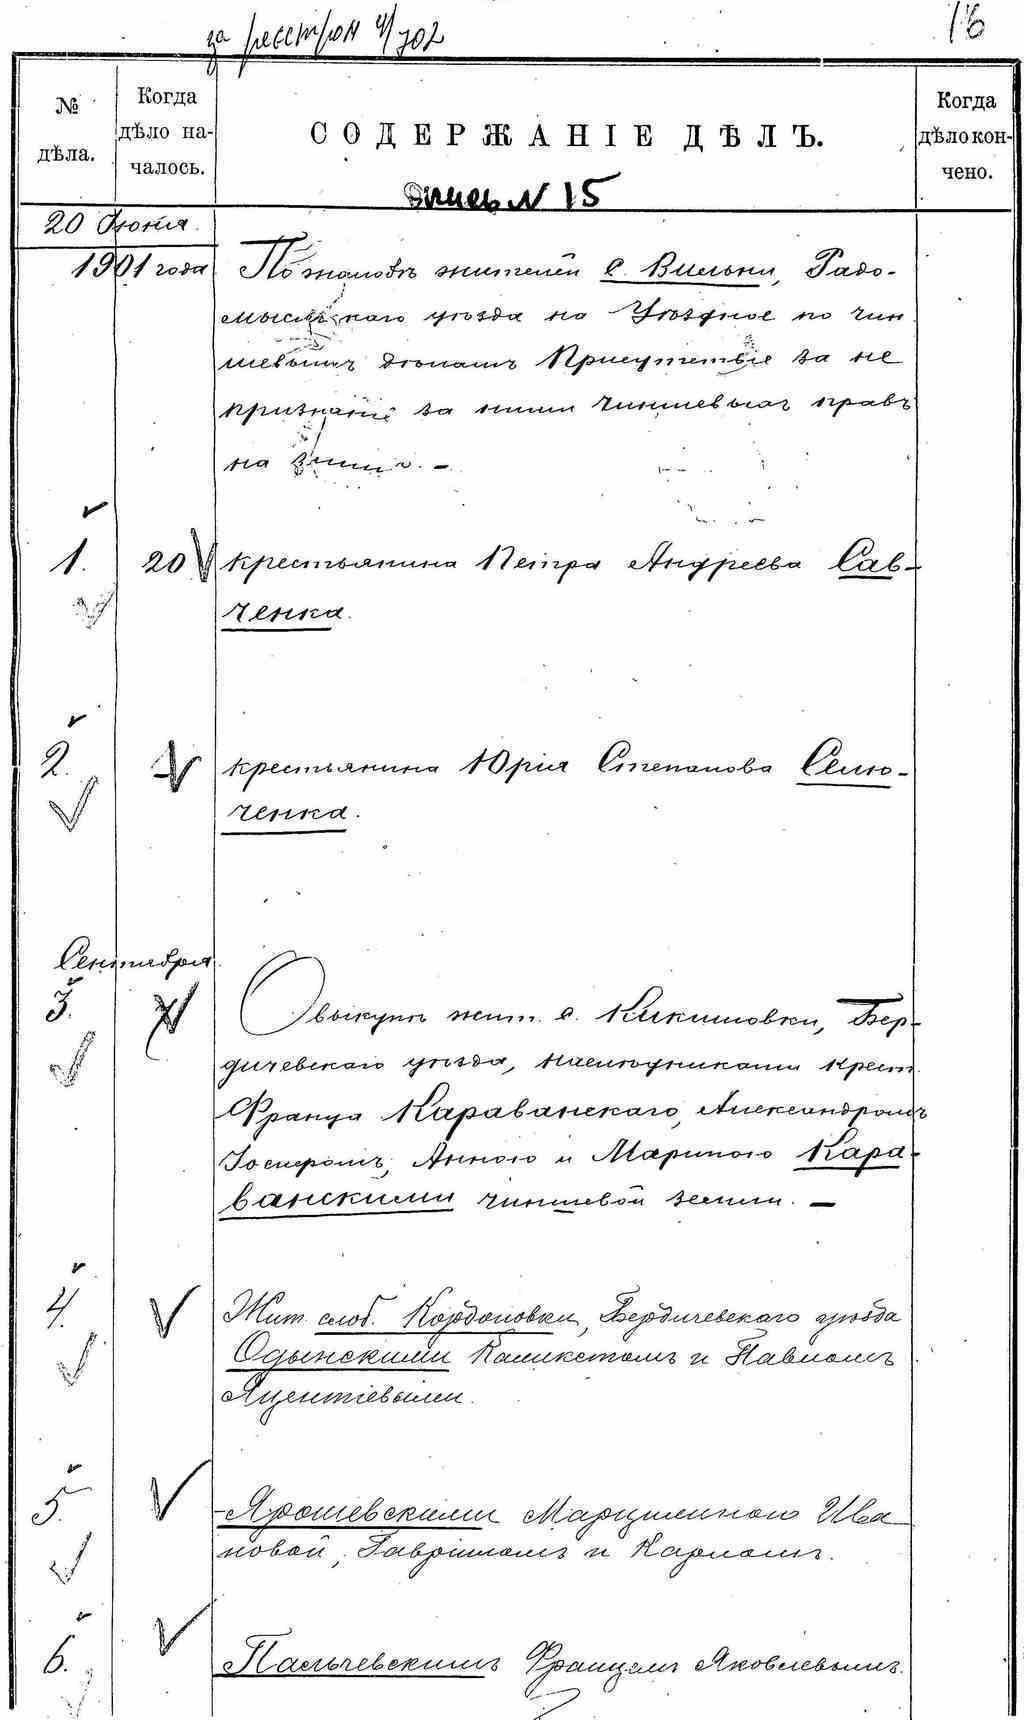 за реестром 4/702
16
№ дѣла.
Когда дѣло началось.
СОДЕРЖАНІЕ ДѢЛЪ.
Когда дѣло кончено.
Опись N 15
20 Іюня.
1901 года По жалобѣ жителей с. Вильни, Радо-
мысльскаго уѣзда на Уѣздное по чин
шевымъ дѣламъ Присутствіе за не
признаніе за ними чиншевыхъ правъ
на землю. –
1. 20 крестьянина Петра Андреева Сав-
ченка.
2. крестьянина Юрія Степанова Семю-
ченка.
Сентября
3. 7 О выкупѣ жит. с. Кикишовки, Бер-
дичевскаго уѣзда, наслѣдниками крест.
Франца Караванскаго, Александромъ
Іосифомъ, Анною и Мариною Кара-
ванскими чиншевой земли. –
4. Жит. слоб. Кордоновки, Бердичевскаго уѣзда
Одынскими Каликстомъ и Павломъ
Яцентіевыми.
5. Ярошевскими Марцелиною Ива
новой, Гавріиломъ и Карломъ.
6. Пальчевскимъ Францемъ Яковлевымъ.